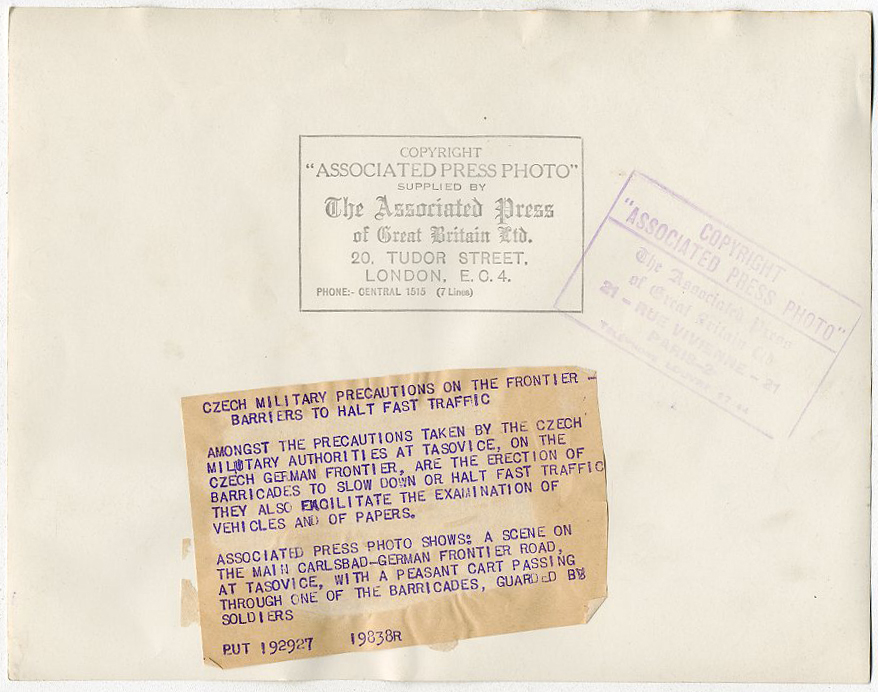 COPYRIGHT
"ASSOCIATED PRESS PHOTO"
SUPPLIED BY
The Associated Press
of Great Britain Ltd.
20, TUDOR STREET,
LONDON, E.C.4.
PHONE:- CENTRAL 1515 (7 Lines)
COPYRIGHT
"ASSOCIATED PRESS PHOTO"
The Associated Press
of Great Britain Ltd
21 - RUE VIVIENNE - 21
PARIS-2
CZECH MILITARY PRECAUTIONS ON THE FRONTIER -
BARRIERS TO HALT FAST TRAFFIC
AMONGST THE PRECAUTIONS TAKEN BY THE CZECH
MILITARY AUTHORITIES AT TASOVICE, ON THE
CZECH GERMAN FRONTIER, ARE THE ERECTION OF
BARRICADES TO SLOW DOWN OR HALT FAST TRAFFIC
THEY ALSO FACILITATE THE EXAMINATION OF
VEHICLES AND OF PAPERS.
ASSOCIATED PRESS PHOTO SHOWS: A SCENE ON
THE MAIN CARLSBAD-GERMAN FRONTIER ROAD,
AT TASOVICE, WITH A PEASANT CART PASSING
THROUGH ONE OF THE BARRICADES, GUARDED BY
SOLDIERS
PUT 192927 19838R